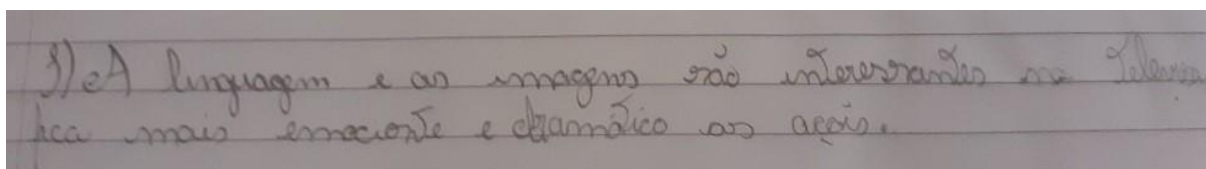 3) A linguagem e as imagens são interessantes na Televisa
fica mais emocionte e dramático as açois.